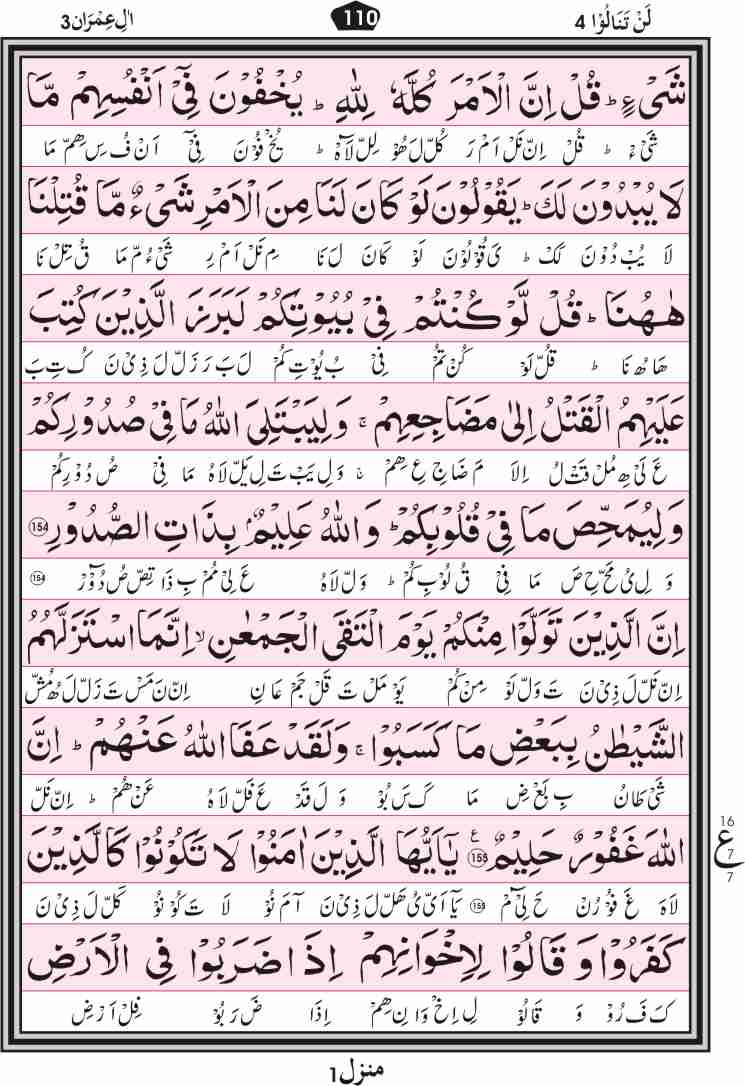 لَنْ تَنَالُوْا 4 110 اٰلِ عِمْرَان 3
شَیْءٍ ؕ قُلْ اِنَّ الْاَمْرَ كُلَّهٗ لِلّٰهِ ؕ یُخْفُوْنَ فِیْۤ اَنْفُسِهِمْ مَّا
شَیْءْ ؕ قُلْ اِنْ نَلْ اَمْ رَ كُلْ لَ هُوْ لِلْ لَاہْ ؕ یُخْ فُوْنَ فِیْٓ اَنْ فُ سِ هِمْ مَا
لَا یُبْدُوْنَ لَكَ ؕ یَقُوْلُوْنَ لَوْ كَانَ لَنَا مِنَ الْاَمْرِ شَیْءٌ مَّا قُتِلْنَا
لَا یُبْ دُوْنَ لَكْ ؕ یَ قُوْلُوْنَ لَوْ كَانَ لَ نَا مِ نَلْ اَمْ رِ شَیْ ءُمْ مَا قُ تِلْ نَا
هٰهُنَا ؕ قُلْ لَّوْ كُنْتُمْ فِیْ بُیُوْتِكُمْ لَبَرَزَ الَّذِیْنَ كُتِبَ
هَا هُ نَا ؕ قُلْ لَوْ كُنْ تُمْ فِیْ بُ یُوْتِ كُمْ لَ بَ رَ زَلْ لَ ذِیْ نَ كُ تِ بَ
عَلَیْهِمُ الْقَتْلُ اِلٰی مَضَاجِعِهِمْ ۚ وَلِیَبْتَلِیَ اللّٰهُ مَا فِیْ صُدُوْرِكُمْ
عَ لَیْ هِ مُلْ قَتْ لُ اِلَا مَ ضَاجِ عِ هِمْ ۚ وَ لِ یَبْ تَ لِ یَلْ لَاہُ مَا فِیْ صُ دُوْرِ كُمْ
وَلِیُمَحِّصَ مَا فِیْ قُلُوْبِكُمْ ؕ وَاللّٰهُ عَلِیْمٌۢ بِذَاتِ الصُّدُوْرِ 154
وَ لِ یُ مَحْ حِ صَ مَا فِیْ قُ لُوْبِ كُمْ ؕ وَلْ لَاہُ عَ لِیْ مُمْ بِ ذَا تِصْ صُ دُوْٓرْ 154
اِنَّ الَّذِیْنَ تَوَلَّوْا مِنْكُمْ یَوْمَ الْتَقَی الْجَمْعٰنِ ۙ اِنَّمَا اسْتَزَلَّهُمُ
اِنْ نَلْ لَ ذِیْ نَ تَ وَلْ لَوْ مِنْ كُمْ یَوْ مَلْ تَ قَلْ جَمْ عَانِ اِنْ نَ مَسْ تَ زَلْ لَ هُ مُشْ
الشَّیْطٰنُ بِبَعْضِ مَا كَسَبُوْا ۚ وَلَقَدْ عَفَا اللّٰهُ عَنْهُمْ ؕ اِنَّ
شَیْ طَانُ بِ بَعْ ضِ مَا كَ سَ بُوْ وَ لَ قَدْ عَ فَلْ لَاہُ عَنْ هُمْ ؕ اِنْ نَلْ
اللّٰهَ غَفُوْرٌ حَلِیْمٌ 155 ع یٰۤاَیُّهَا الَّذِیْنَ اٰمَنُوْا لَا تَكُوْنُوْا كَالَّذِیْنَ
لَاہَ غَ فُوْ رُنْ حَ لِیْٓ مْ 155 یَآ اَیْ یُ هَلْ لَ ذِیْ نَ آ مَ نُوْ لَا تَ كُوْ نُوْ كَلْ لَ ذِیْ نَ
16
ع
7
7
كَفَرُوْا وَ قَالُوْا لِاِخْوَانِهِمْ اِذَا ضَرَبُوْا فِی الْاَرْضِ
كَ فَ رُوْ وَ قَا لُوْ لِ اِخْ وَا نِ هِمْ اِذَا ضَ رَ بُوْ فِلْ اَرْ ضِ
منزل 1